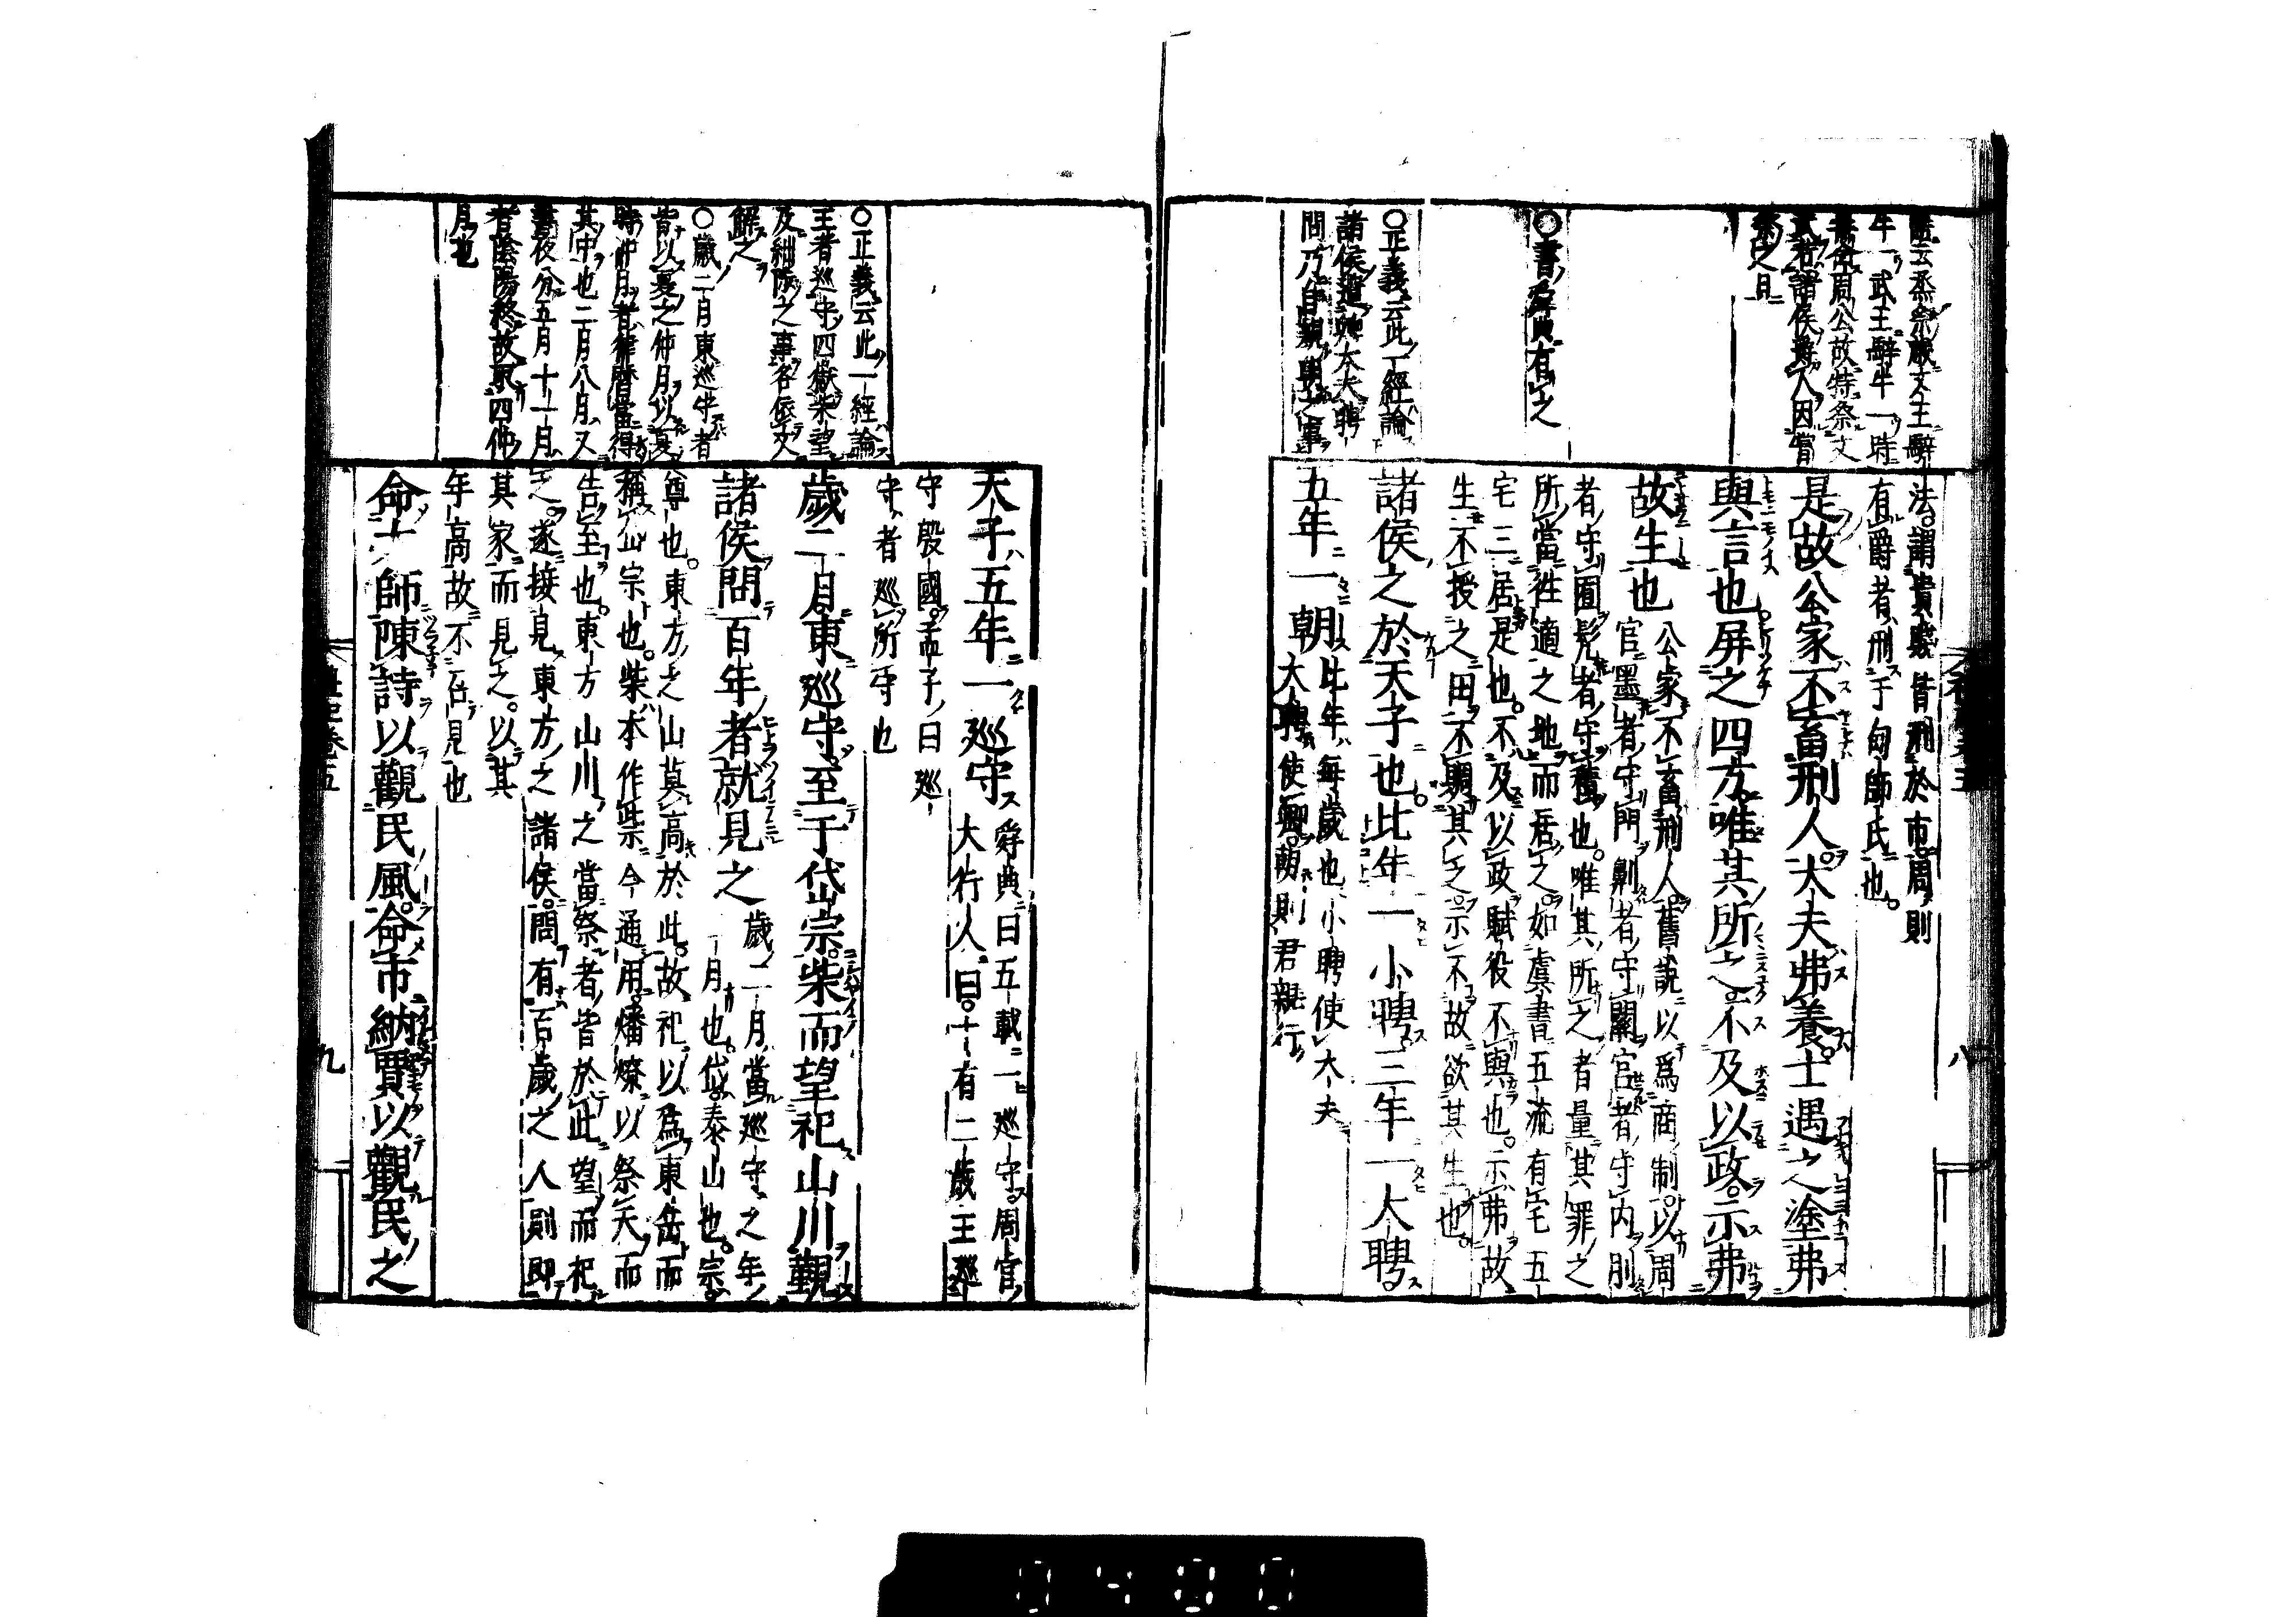 法謂貴賤皆刑於市周則
有爵者刑于甸師氏也
是故公家不畜刑人大夫弗養士遇之塗弗
與言也屏之四方唯其所之不及以政示弗
故生也
公家不畜刑人舊說以爲商制以周
官墨者守門劓者守關宮者守内刖
者守囿髠者守積也唯其所之者量其罪之
所當徃適之地而居之如虞書五流有宅五
宅三居是也不及以政賦役不與也示弗故
生不授之田不賙其乏示不故欲其生也
諸侯之於天子也比年一小聘三年一大聘
五年一朝
比年每歲也小聘使大夫
大聘使卿朝則君親行
云烝祭歲文王騂
牛一武王騂牛一時
周公故特祭文
諸侯人因嘗
之日
○書舜典有之
○正義云此一經論
諸侯遣卿大夫聘
問乃自親朝之事
天子五年一巡守
舜典曰五載一巡守周官
大行人曰十有二歲王巡
守殷國孟子曰巡
守者巡所守也
歲二月東巡守至于岱宗柴而望祀山川觀
諸侯問百年者就見之
歲二月當巡守之年
二月也岱泰山也宗
尊也東方之山莫高於此故祀以爲東岳而
稱岱宗也柴本作祡今通用燔燎以祭天而
告至也東方山川之當祭者皆於此望而祀
之遂接見東方之諸侯問有百歲之人則即
其家而見之以其
年高故不召見也
命大師陳詩以觀民風命市納賈以觀民之
○正義云此一經論
王者巡守四嶽柴望
及絀陟之事各依文
解之
○歲二月東巡守者
皆以夏之仲月以夏
時仲月者律曆當得
其中也二月八月又
晝夜分五月十一月
者陰陽終故取四仲
月也
卷五
九
八
0400